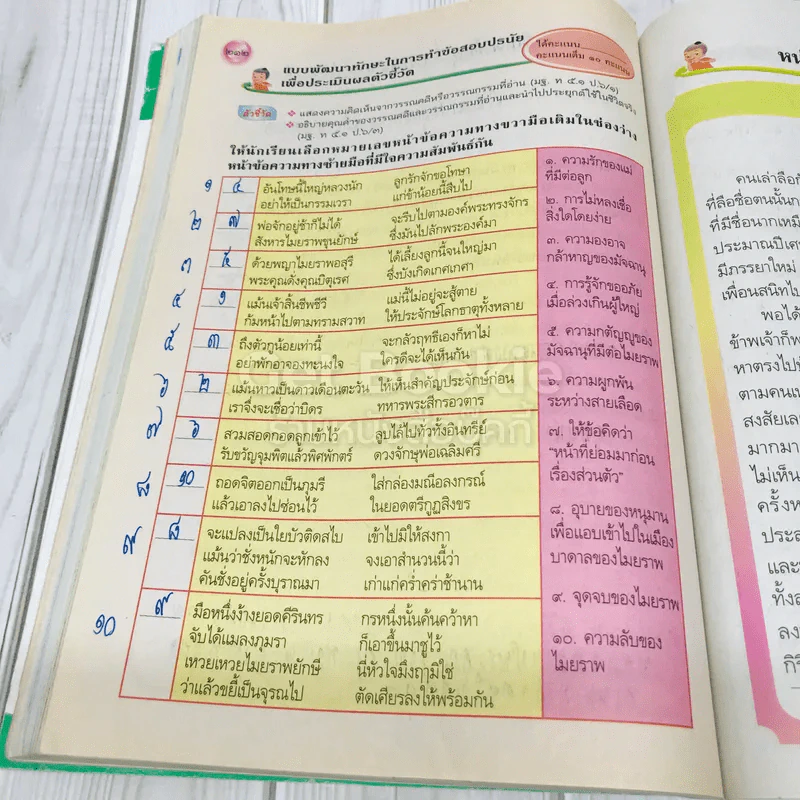 ๒๓๒
แบบพัฒนาทักษะในการทำข้อสอบปรนัย
เพื่อประเมินผลตัวชี้วัด
ได้คะแนน
คะแนนเต็ม ๑๐ คะแนน
ตัวชี้วัด
❖ แสดงความคิดเห็นจากวรรณคดีหรือวรรณกรรมที่อ่าน (มฐ. ท ๕.๑ ป.๖/๑)
❖ อธิบายคุณค่าของวรรณคดีและวรรณกรรมที่อ่านและนำไปประยุกต์ใช้ในชีวิตจริง
(มฐ. ท ๕.๑ ป.๖/๓)
ให้นักเรียนเลือกหมายเลขหน้าข้อความทางขวามือเติมในช่องว่าง
หน้าข้อความทางซ้ายมือที่มีใจความสัมพันธ์กัน
๑ ๔ อันโทษนี้ใหญ่หลวงนัก ลูกรักจักขอโทษา
อย่าให้เป็นกรรมเวรา แก่ข้าน้อยนี้สืบไป
๒ ๗ พ่อจักอยู่ช้าก็ไม่ได้ จะรีบไปตามองค์พระทรงจักร
สังหารไมยราพขุนยักษ์ ซึ่งมันไปลักพระองค์มา
๓ ๕ ด้วยพญาไมยราพอสุรี ได้เลี้ยงลูกนี้จนใหญ่มา
พระคุณดังคุณบิตุเรศ ซึ่งบังเกิดเกศเกศา
๔ ๑ แม้นเจ้าสิ้นชีพชีวี แม่นี้ไม่อยู่จะสู้ตาย
ก้มหน้าไปตามทรามสวาท ให้ประจักษ์โลกธาตุทั้งหลาย
๕ ๓ ถึงตัวกูน้อยเท่านี้ จะกลัวฤทธีเองก็หาไม่
อย่าพักอาจองทะนงใจ ใครดีจะได้เห็นกัน
๖ ๒ แม้นหาวเป็นดาวเดือนตะวัน ให้เห็นสำคัญประจักษ์ก่อน
เราจึ่งจะเชื่อว่าบิดร ทหารพระสี่กรอวตาร
๗ ๖ สวมสอดกอดลูกเข้าไว้ ลูบไล้ไปทั่วทั้งอินทรีย์
รับขวัญจุมพิตแล้วพิศพักตร์ ดวงจักษุพ่อเฉลิมศรี
๘ ๑๐ ถอดจิตออกเป็นภุมรี ใส่กล่องมณีอลงกรณ์
แล้วเอาลงไปซ่อนไว้ ในยอดตรีกูฏสิงขร
๙ ๘ จะแปลงเป็นใยบัวติดสไบ เข้าไปมิให้สงกา
แม้นว่าชั่งหนักจะหักลง จงเอาสำนวนนี้ว่า
คันชั่งอยู่ครั้งบุราณมา เก่าแก่คร่ำคร่าช้านาน
๑๐ ๙ มือหนึ่งง้างยอดคีรินทร กรหนึ่งนั้นค้นคว้าหา
จับได้แมลงภุมรา ก็เอาขึ้นมาชูไว้
เหวยเหวยไมยราพยักษี นี่หัวใจมึงฤามิใช่
ว่าแล้วขยี้เป็นจุรณไป ตัดเศียรลงให้พร้อมกัน
๑. ความรักของแม่
ที่มีต่อลูก
๒. การไม่หลงเชื่อ
สิ่งใดโดยง่าย
๓. ความองอาจ
กล้าหาญของมัจฉานุ
๔. การรู้จักขออภัย
เมื่อล่วงเกินผู้ใหญ่
๕. ความกตัญญูของ
มัจฉานุที่มีต่อไมยราพ
๖. ความผูกพัน
ระหว่างสายเลือด
๗. ให้ข้อคิดว่า
"หน้าที่ย่อมมาก่อน
เรื่องส่วนตัว"
๘. อุบายของหนุมาน
เพื่อแอบเข้าไปในเมือง
บาดาลของไมยราพ
๙. จุดจบของไมยราพ
๑๐. ความลับของ
ไมยราพ
คนเล่าลือกั
ที่ลือชื่อตนนั้นก
ที่มีชื่อนากเหมื
ประมาณปีเศษ
มีภรรยาใหม่
เพื่อนสนิทไป
พอได้
ข้าพเจ้าก็พ
หาตรงไปที่
ตามคนเ
สงสัยเล
มากมา
ไม่เห็น
ครั้งห
ประส
และ
ทั้งส
ลง
กิริ